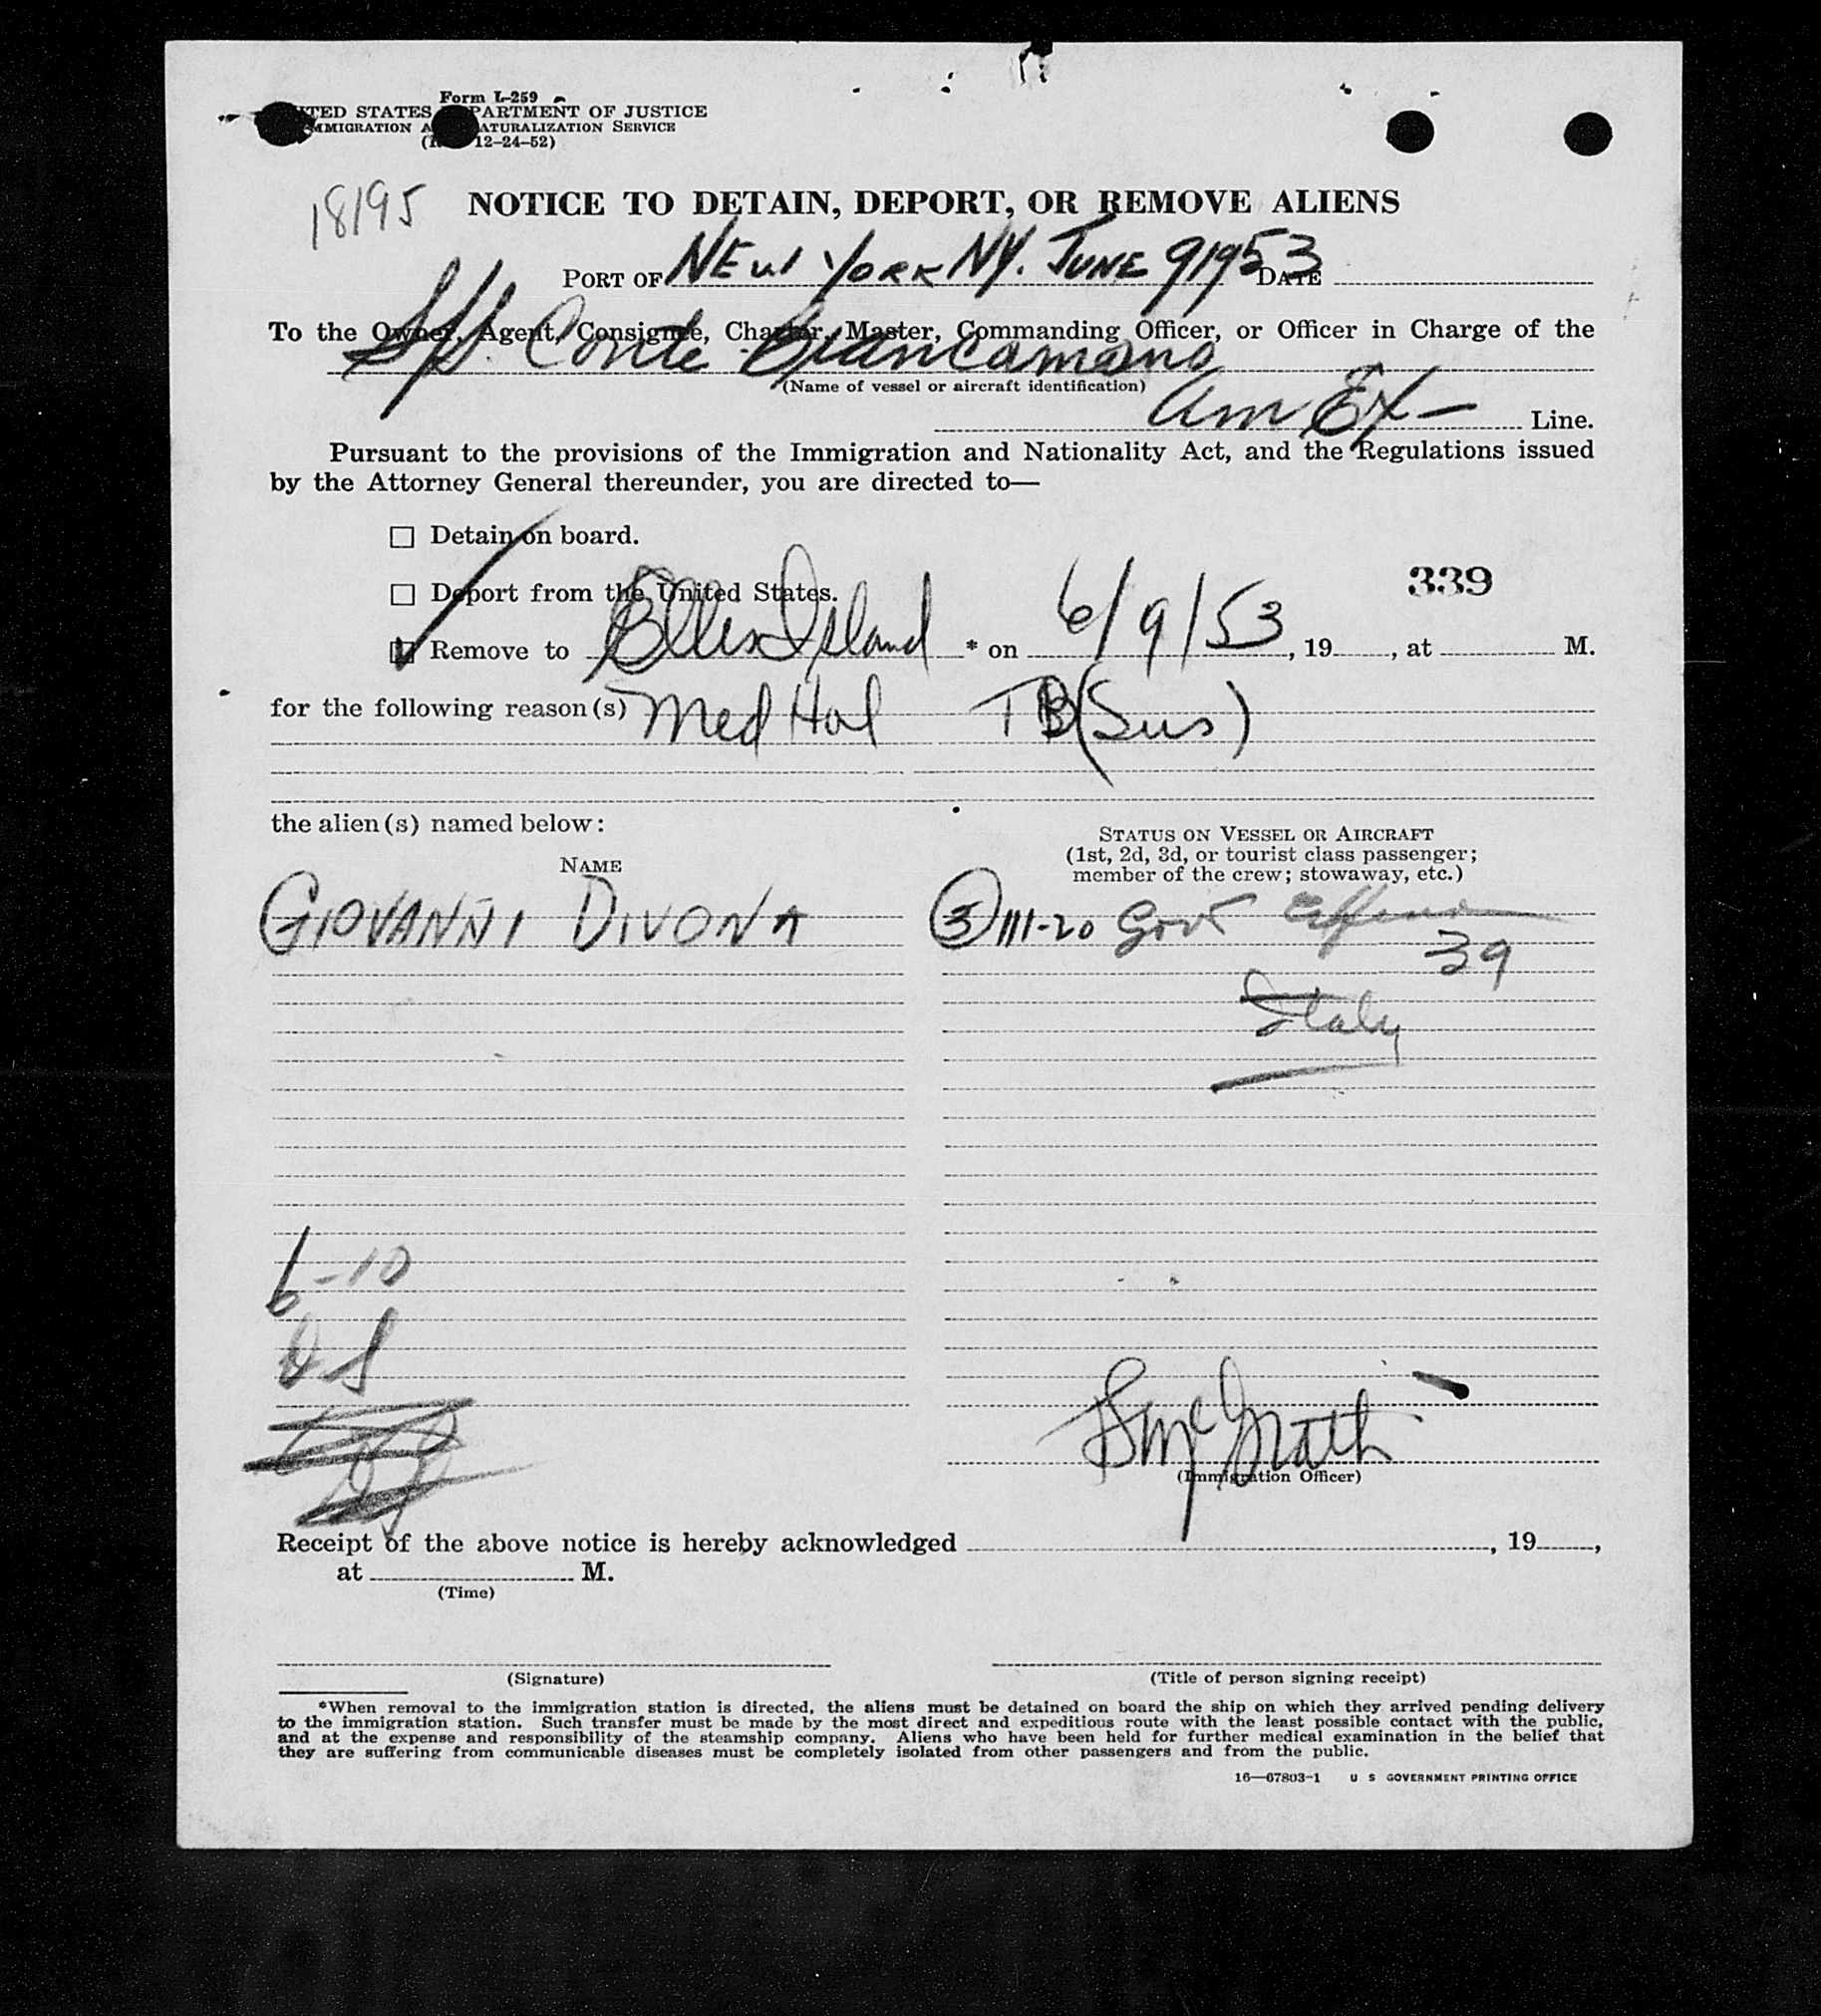 Form I-259
UNITED STATES DEPARTMENT OF JUSTICE
IMMIGRATION AND NATURALIZATION SERVICE
12-24-52)
18195
NOTICE TO DETAIN, DEPORT, OR REMOVE ALIENS
PORT OF NEW YORK NY. JUNE 9 1953 DATE
To the Owner, Agent, Consignee, Charter, Master, Commanding Officer, or Officer in Charge of the
S/S. Conte Biancamano
(Name of vessel or aircraft identification)
Am Ex — Line.
Pursuant to the provisions of the Immigration and Nationality Act, and the Regulations issued
by the Attorney General thereunder, you are directed to—
Detain on board.
Deport from the United States.
339
Remove to Ellis Island * on 6/9/53, 19, at M.
for the following reason(s) Med Hol TB (Sus)
the alien(s) named below:
STATUS ON VESSEL OR AIRCRAFT
(1st, 2d, 3d, or tourist class passenger;
member of the crew; stowaway, etc.)
NAME
GIOVANNI DIVONA
3 111-20 Govt
39
Italy
6-10
McGrath
(Immigration Officer)
Receipt of the above notice is hereby acknowledged , 19 ,
at M.
(Time)
(Signature) (Title of person signing receipt)
*When removal to the immigration station is directed, the aliens must be detained on board the ship on which they arrived pending delivery
to the immigration station. Such transfer must be made by the most direct and expeditious route with the least possible contact with the public,
and at the expense and responsibility of the steamship company. Aliens who have been held for further medical examination in the belief that
they are suffering from communicable diseases must be completely isolated from other passengers and from the public.
16—67803-1 U S GOVERNMENT PRINTING OFFICE